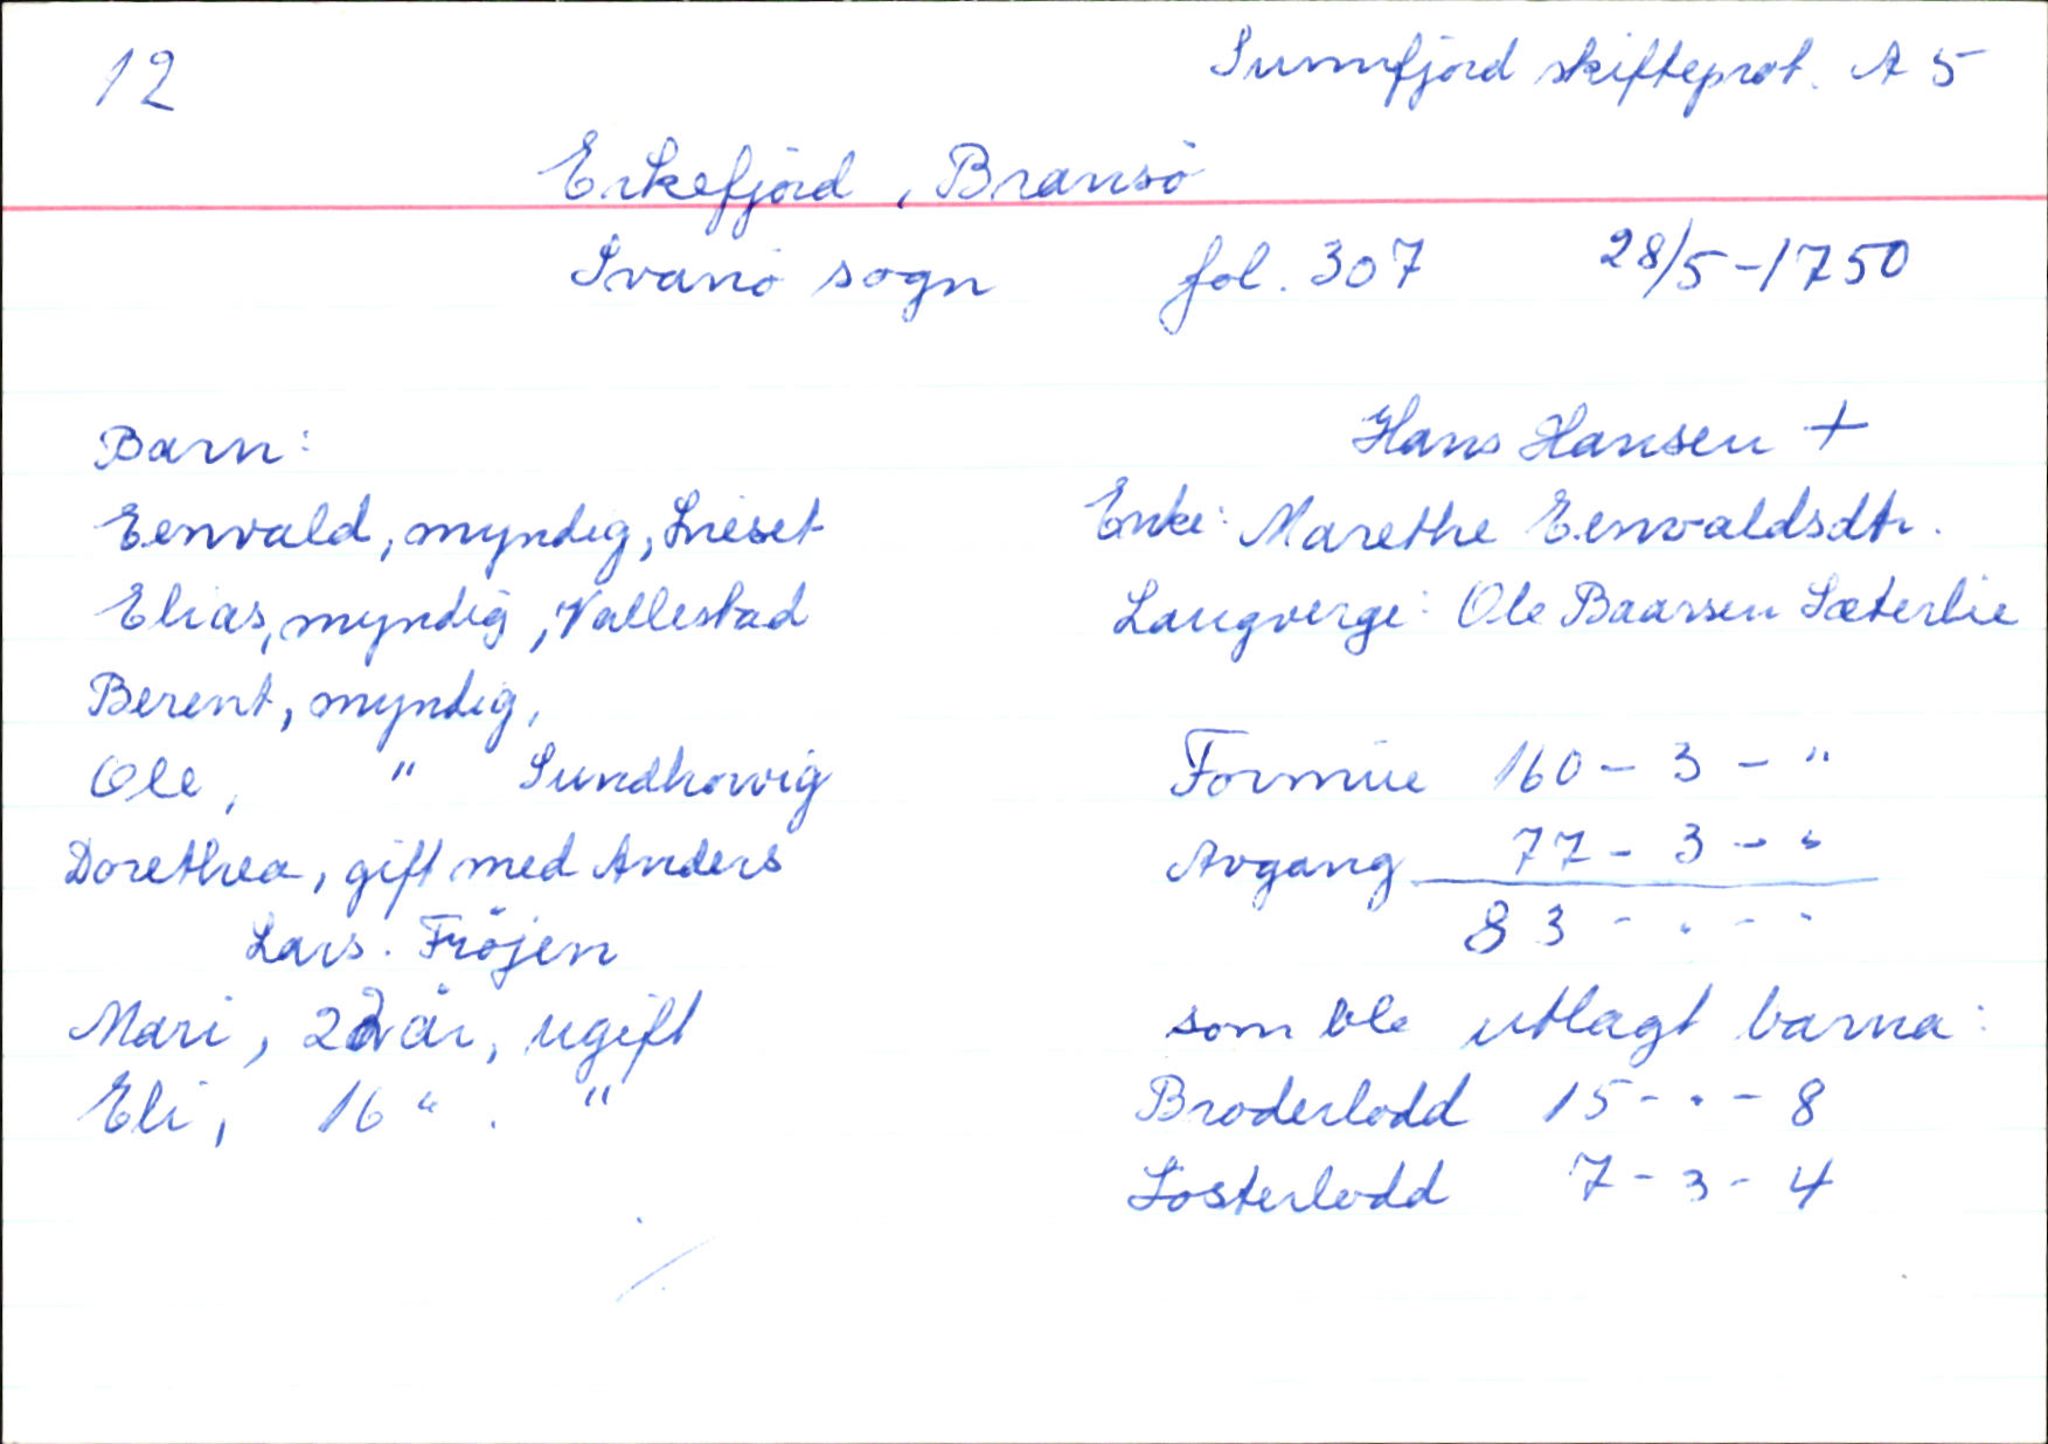 12
Sunnfjord skifteprot. A 5
Erkefjord, Bransö
Svanö sogn fol. 307 28/5-1750
Barn:
Eenvald, myndig, Lieset
Elias, myndig, Vallestad
Berent, myndig,
Ole, " Sundhovig
Dorethea, gift med Anders
Lars. Fröjen
Mari, 22 år, ugift
Eli, 16 " . "
Hans Hansen +
Enke: Marethe Eenvaldsdtr.
Laugverge: Ole Baarsen Sæterlie
Formue 160 - 3 - "
Avgang 77 - 3 - "
83 - . - -
som ble utlagt barna:
Broderlodd 15 - . - 8
Søsterlodd 7 - 3 - 4